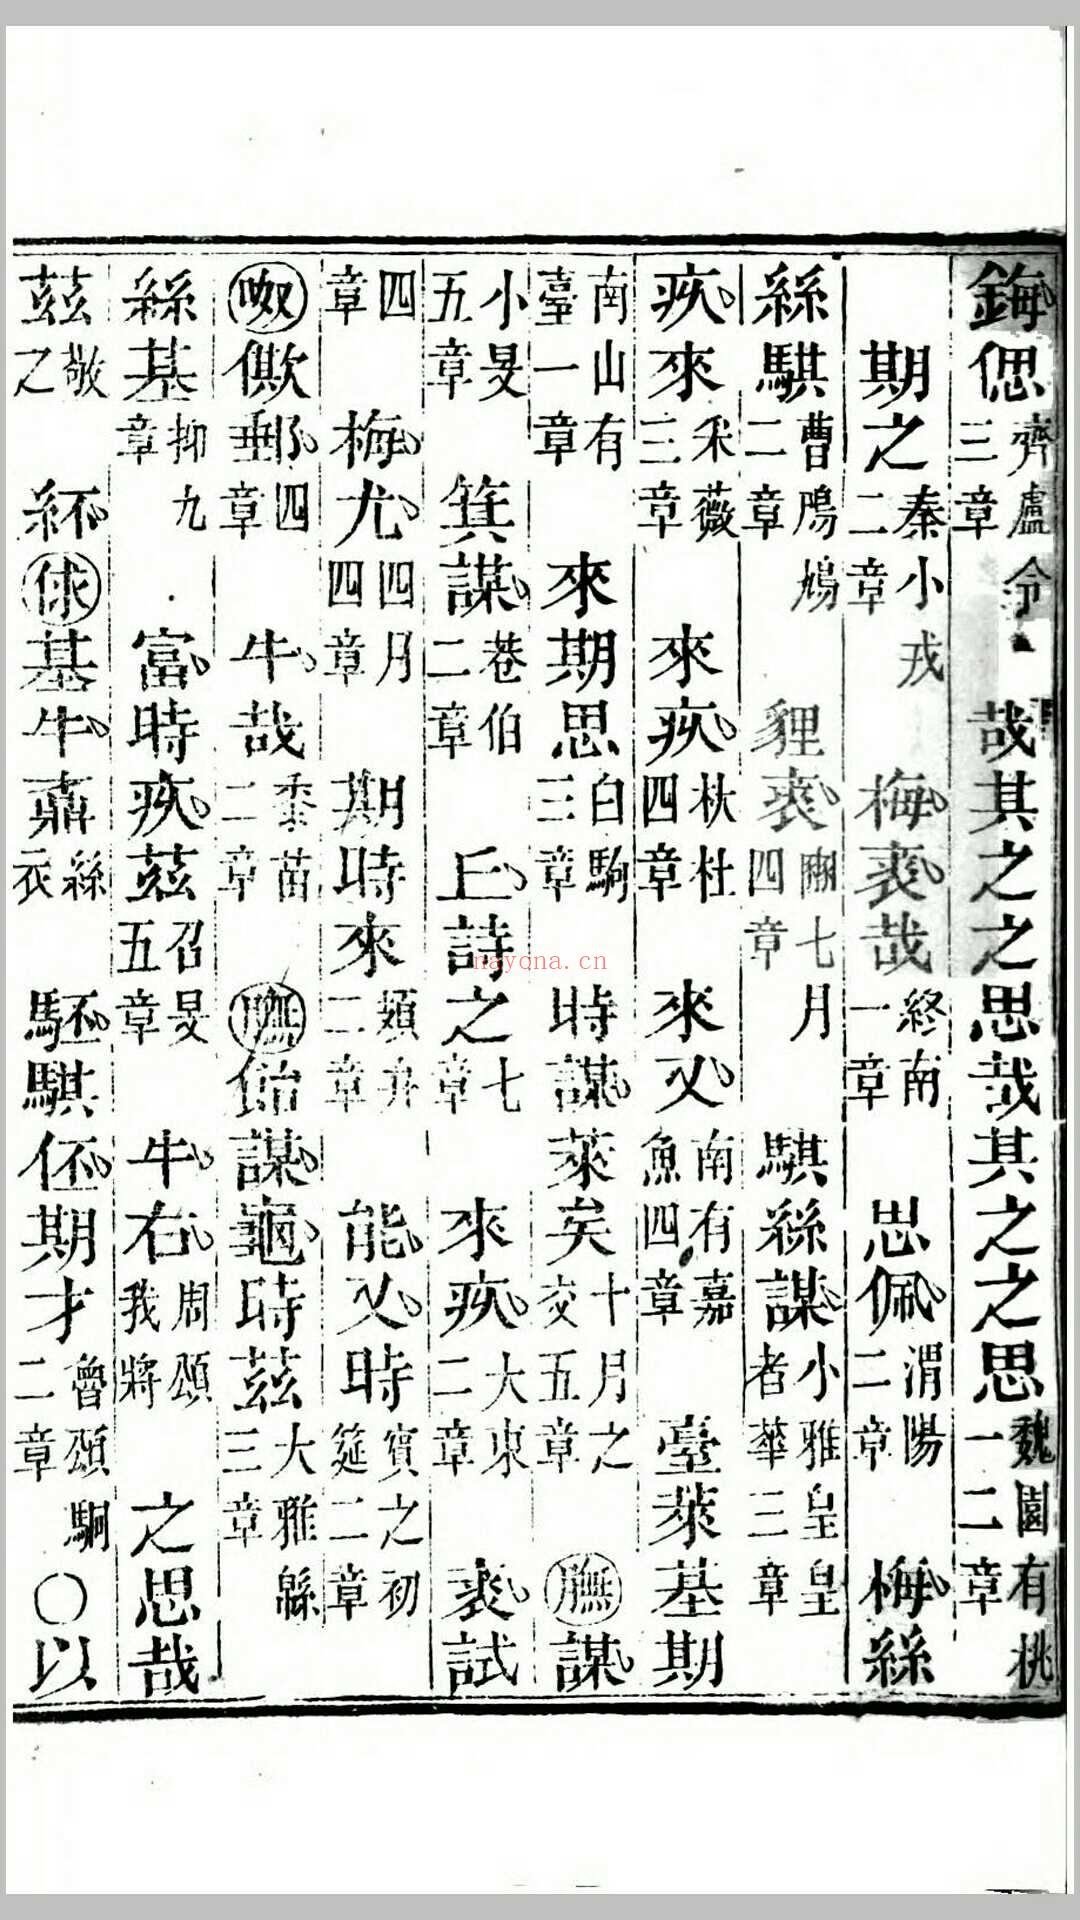 鋂偲齊盧令三章 哉其之之思哉其之之思魏園有桃一二章
期之秦小戎二章 梅裘哉終南一章 思佩渭陽二章 梅絲
絲騏曹鳲鳩二章 貍裘豳七月四章 騏絲謀小雅皇皇者華三章
疚來采薇三章 來疚杕杜四章 來又南有嘉魚四章 臺萊基期
南山有臺一章 來期思白駒三章 時謀萊矣十月之交五章 膴謀
小旻五章 箕謀巷伯二章 丘詩之七章 來疚大東二章 裘試
四章 梅尤四月四章 期時來頍弁二章 能又時賓之初筵二章
呶僛郵四章 牛哉黍苗二章 膴飴謀龜時茲大雅緜三章
絲基抑九章 富時疚茲召旻五章 牛右周頌我將 之思哉
茲敬之 紑俅基牛鼒絲衣 駓騏伾期才魯頌駉二章 ○以
nayona.cn